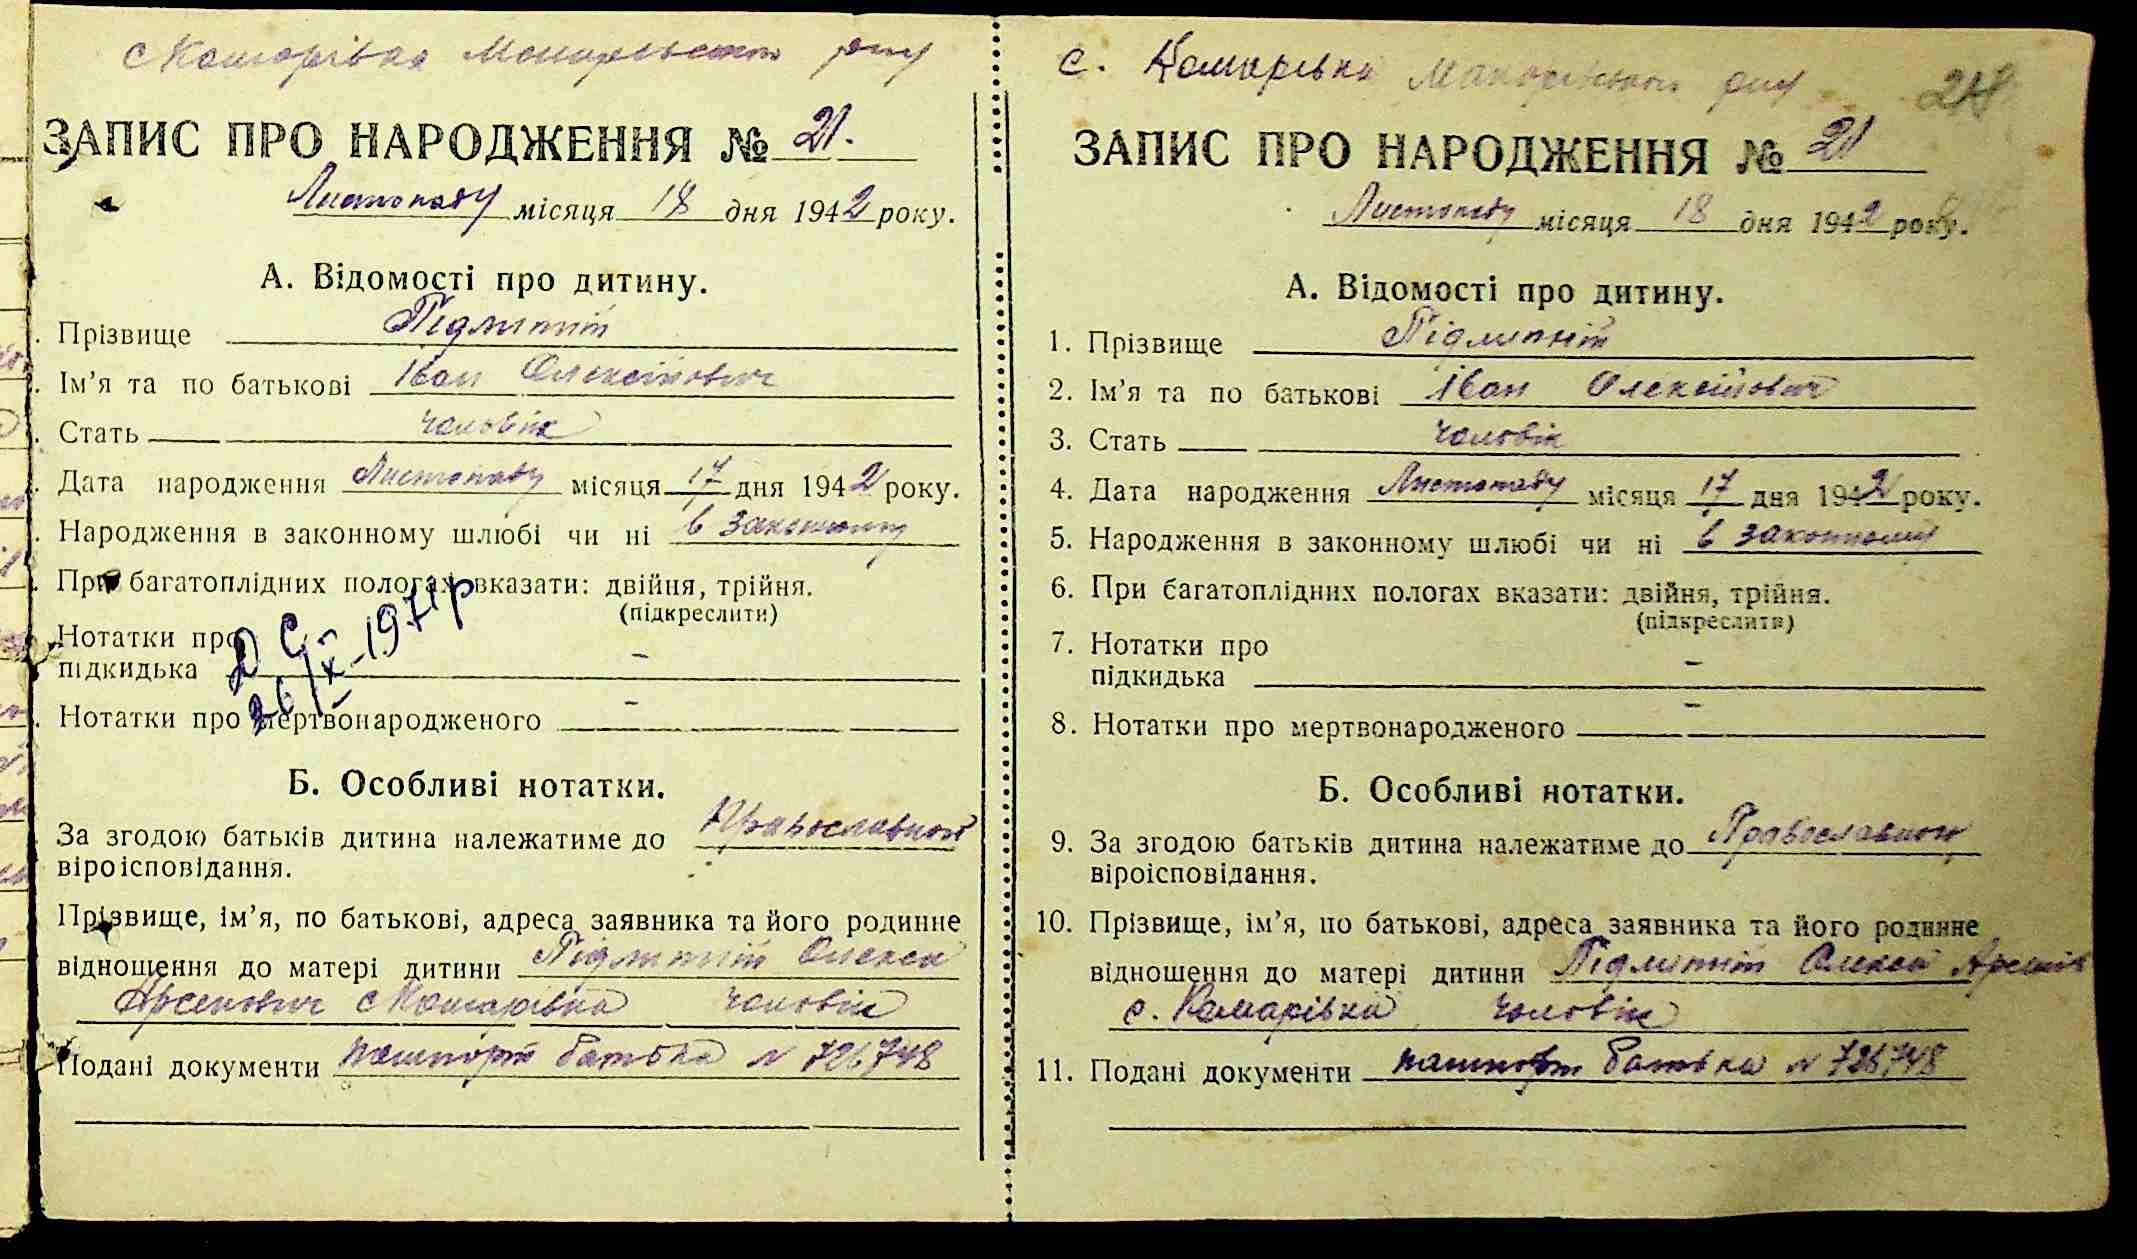 с Комарівка Макарівського р-ну
ЗАПИС ПРО НАРОДЖЕННЯ № 21.
Листопаду місяця 18 дня 1942 року.
А. Відомості про дитину.
Прізвище Підлипній
Ім’я та по батькові Іван Олексійович
Стать чоловік
Дата народження Листопаду місяця 17 дня 1942 року.
Народження в законному шлюбі чи ні в законному
При багатоплідних пологах вказати: двійня, трійня.
(підкреслити)
Нотатки про
підкидька –
Д С
26/IX-1971р
Нотатки про мертвонародженого –
Б. Особливі нотатки.
За згодою батьків дитина належатиме до Православної
віроісповідання.
Прізвище, ім’я, по батькові, адреса заявника та його родинне
відношення до матері дитини Підлипній Олекси
Арсенович с Комарівка чоловік
Подані документи пашпорт батька N 726748
с. Комарівка Макарівського р-ну
ЗАПИС ПРО НАРОДЖЕННЯ № 21
Листопаду місяця 18 дня 1942 року.
А. Відомості про дитину.
1. Прізвище Підлипній
2. Ім’я та по батькові Іван Олексійович
3. Стать чоловік
4. Дата народження Листопаду місяця 17 дня 1942 року.
5. Народження в законному шлюбі чи ні в законному
6. При багатоплідних пологах вказати: двійня, трійня.
(підкреслити)
7. Нотатки про
підкидька –
8. Нотатки про мертвонародженого –
Б. Особливі нотатки.
9. За згодою батьків дитина належатиме до Православного
віроісповідання.
10. Прізвище, ім’я, по батькові, адреса заявника та його родинне
відношення до матері дитини Підлипній Олексій
с. Комарівка, чоловік
11. Подані документи пашпорт батька N 726748